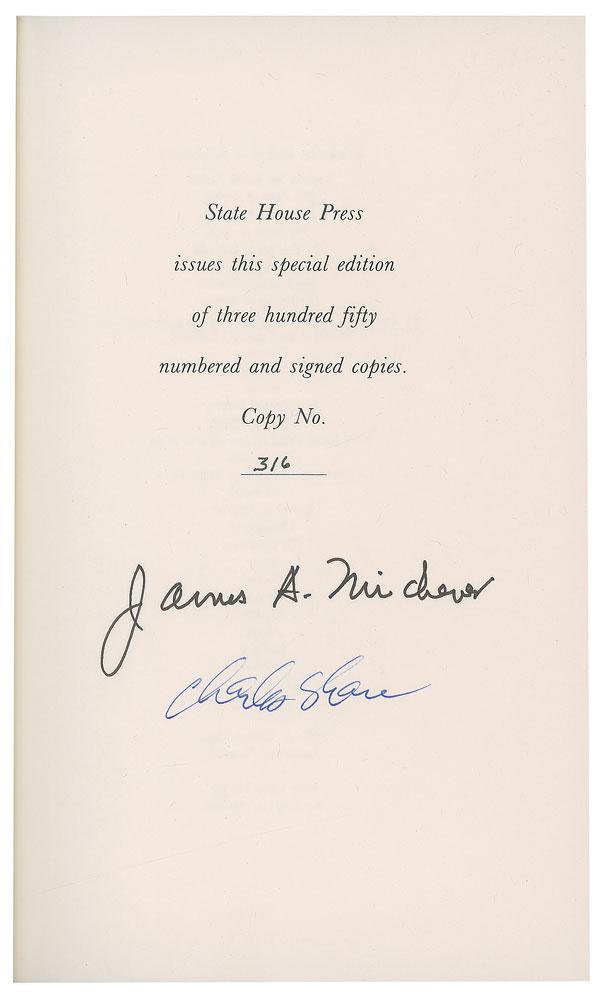 State House Press
issues this special edition
of three hundred fifty
numbered and signed copies.
Copy No.
316
James A. Michener
Charles Shaw